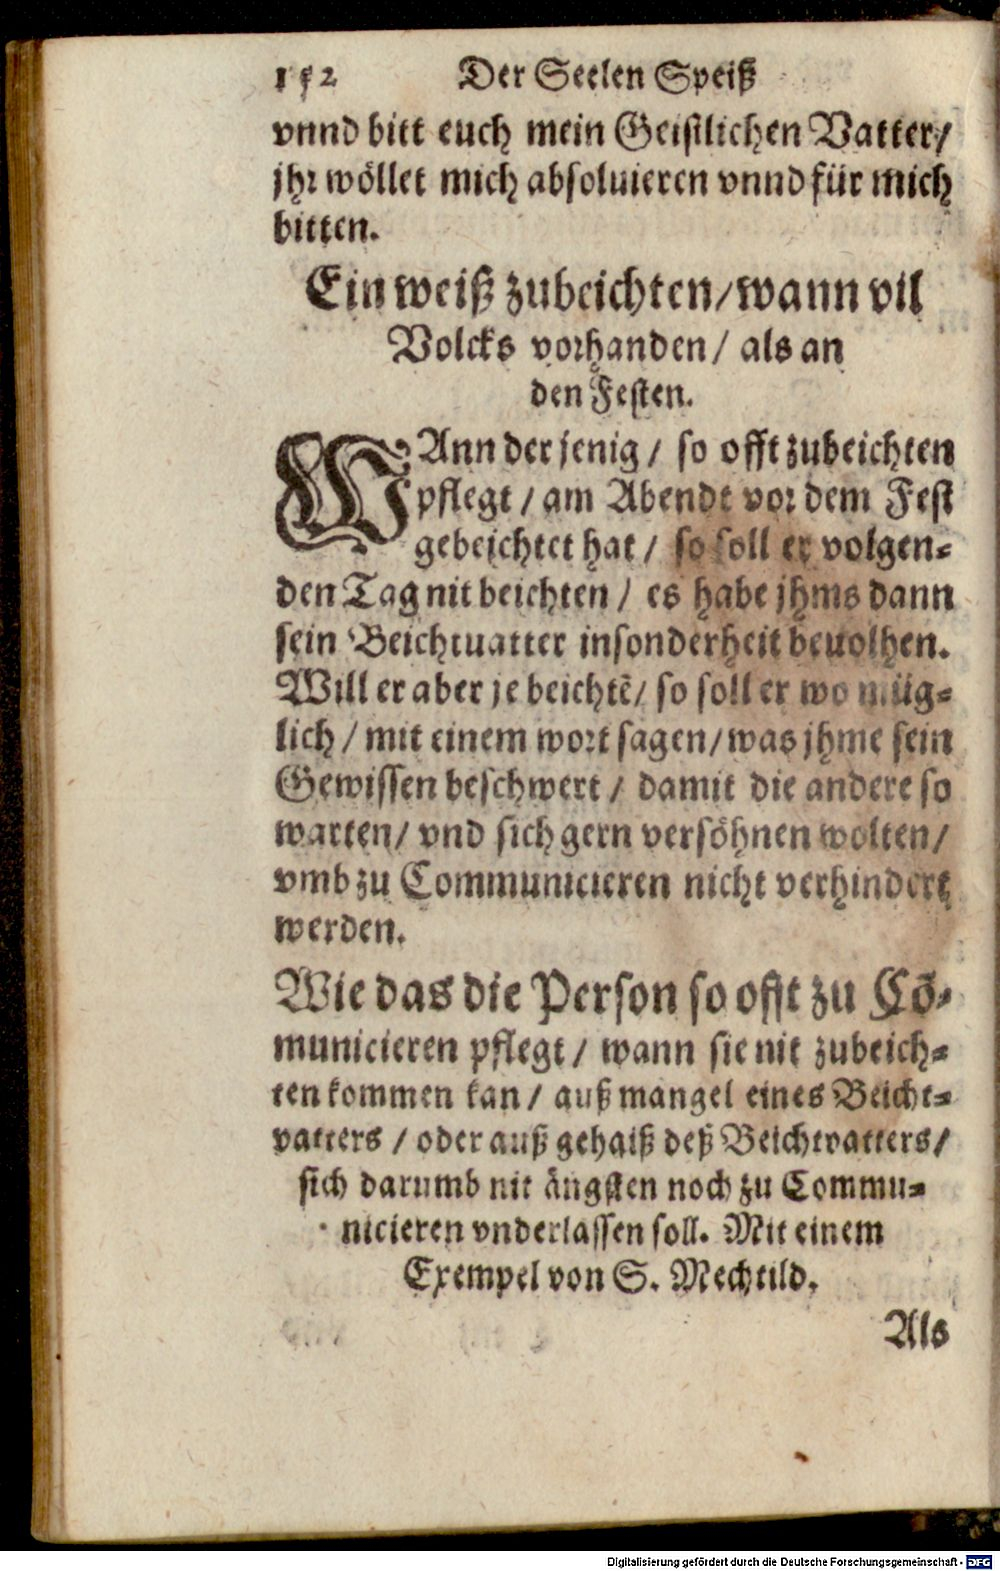 152 Der Seelen Speiß
vnnd bitt euch mein Geistlichen Vatter/
jhr wöllet mich absoluieren vnnd für mich
bitten.
Ein weiß zubeichten/wann vil
Volcks vorhanden/ als an
den Festen.
WAnn der jenig/ so offt zubeichten
pflegt/ am Abendt vor dem Fest
gebeichtet hat/ so soll er volgen⸗
den Tag nit beichten/ es habe jhms dann
sein Beichtuatter insonderheit beuolhen.
Will er aber je beichtē/ so soll er wo müg⸗
lich/ mit einem wort sagen/was jhme sein
Gewissen beschwert/ damit die andere so
warten/ vnd sich gern versöhnen wolten/
vmb zu Communicieren nicht verhindert
werden.
Wie das die Person so offt zu Cō⸗
municieren pflegt/ wann sie nit zubeich⸗
ten kommen kan/ auß mangel eines Beicht⸗
vatters/ oder auß gehaiß deß Beichtvatters/
sich darumb nit ängsten noch zu Commu⸗
nicieren vnderlassen soll. Mit einem
Exempel von S. Mechtild.
Als
Digitalisierung gefördert durch die Deutsche Forschungsgemeinschaft - DFG